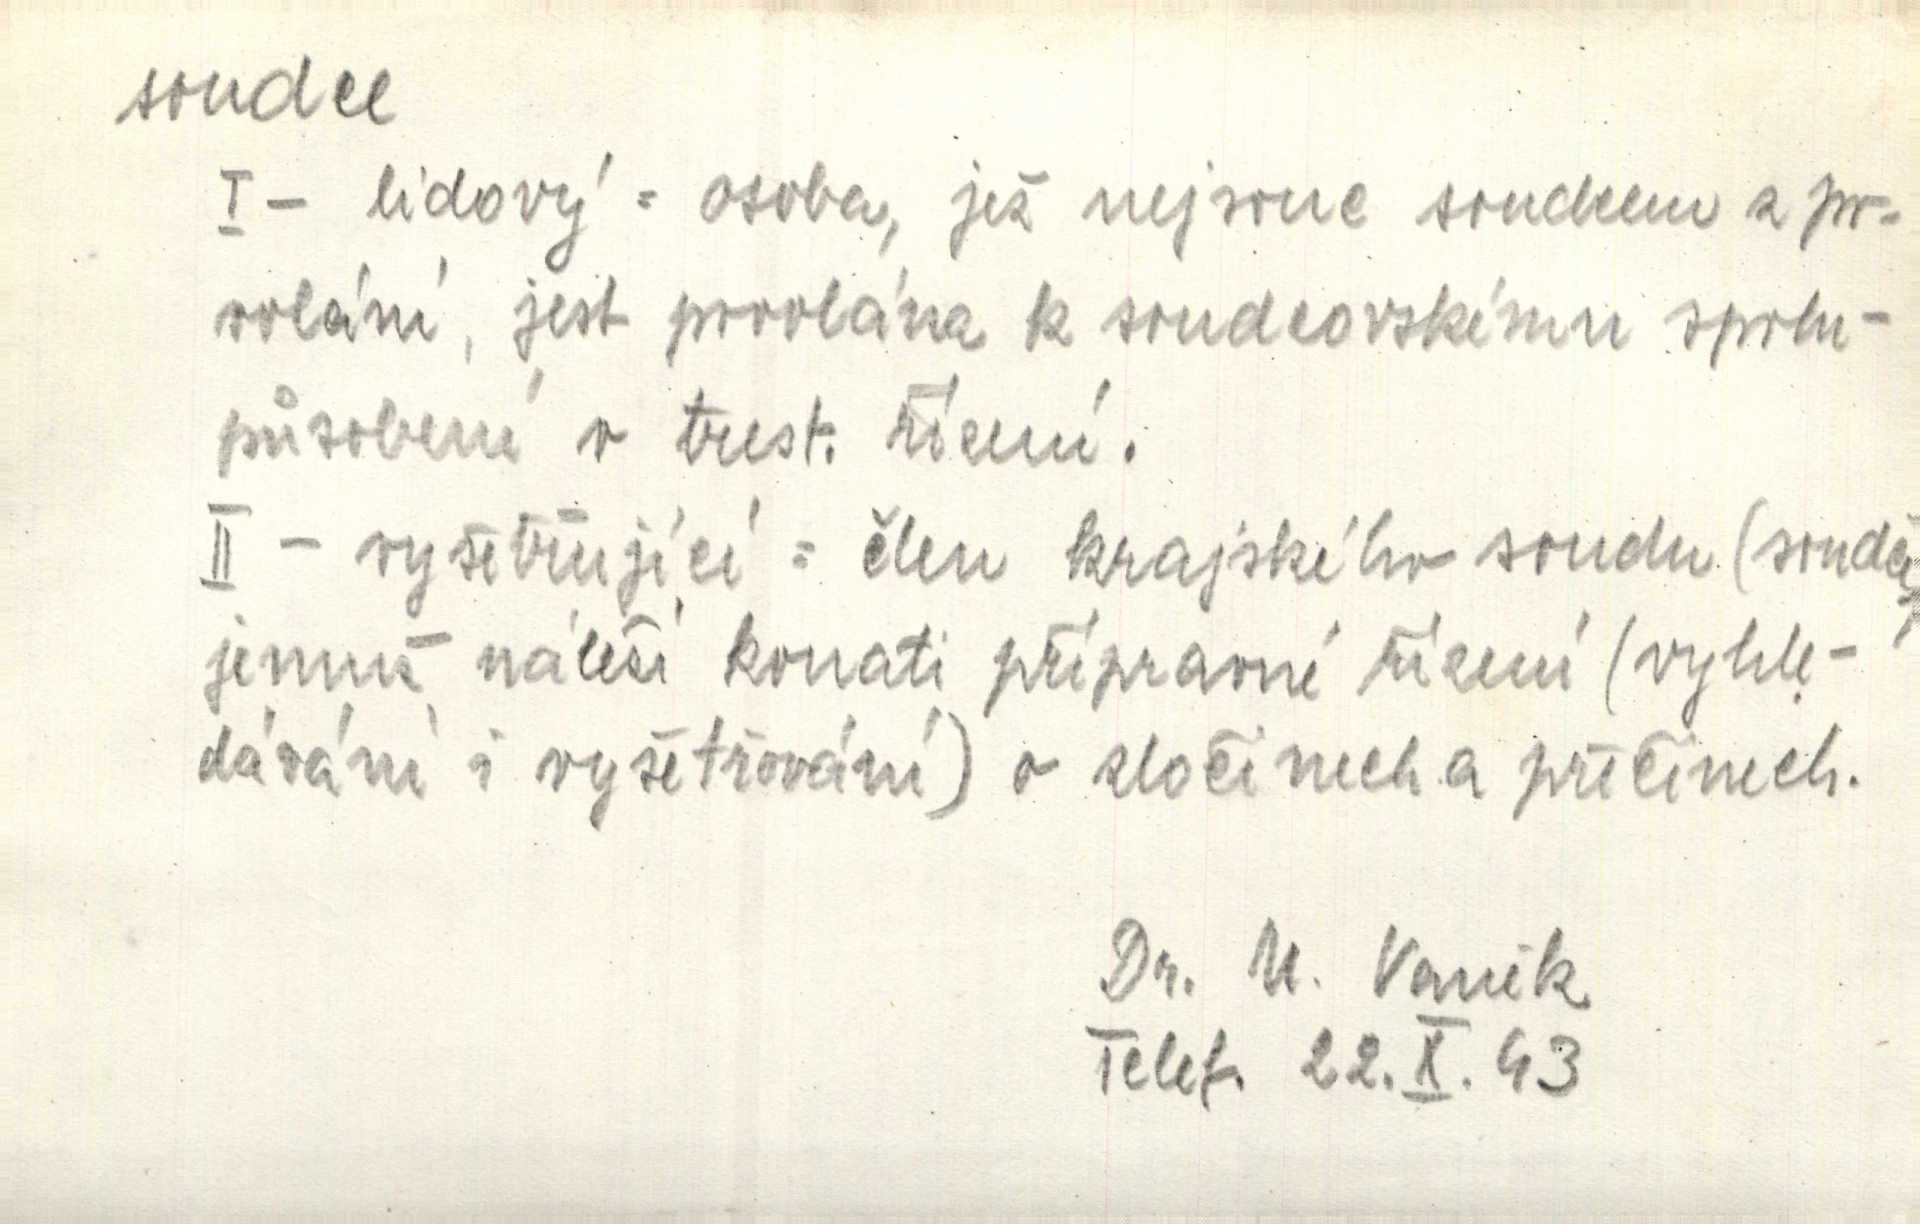 soudce
I – lidový = osoba, jež nejsouc soudcem z po-
volání, jest povolána k soudcovskému spolu-
působení v trest. řízení.
II – vyšetřující = člen krajského soudu (soudce),
jemuž náleží konati přípravné řízení (vyhle-
dávání i vyšetřování) o zločinech a přečinech.
Dr. M. Vaník
Telef. 22. X. 43